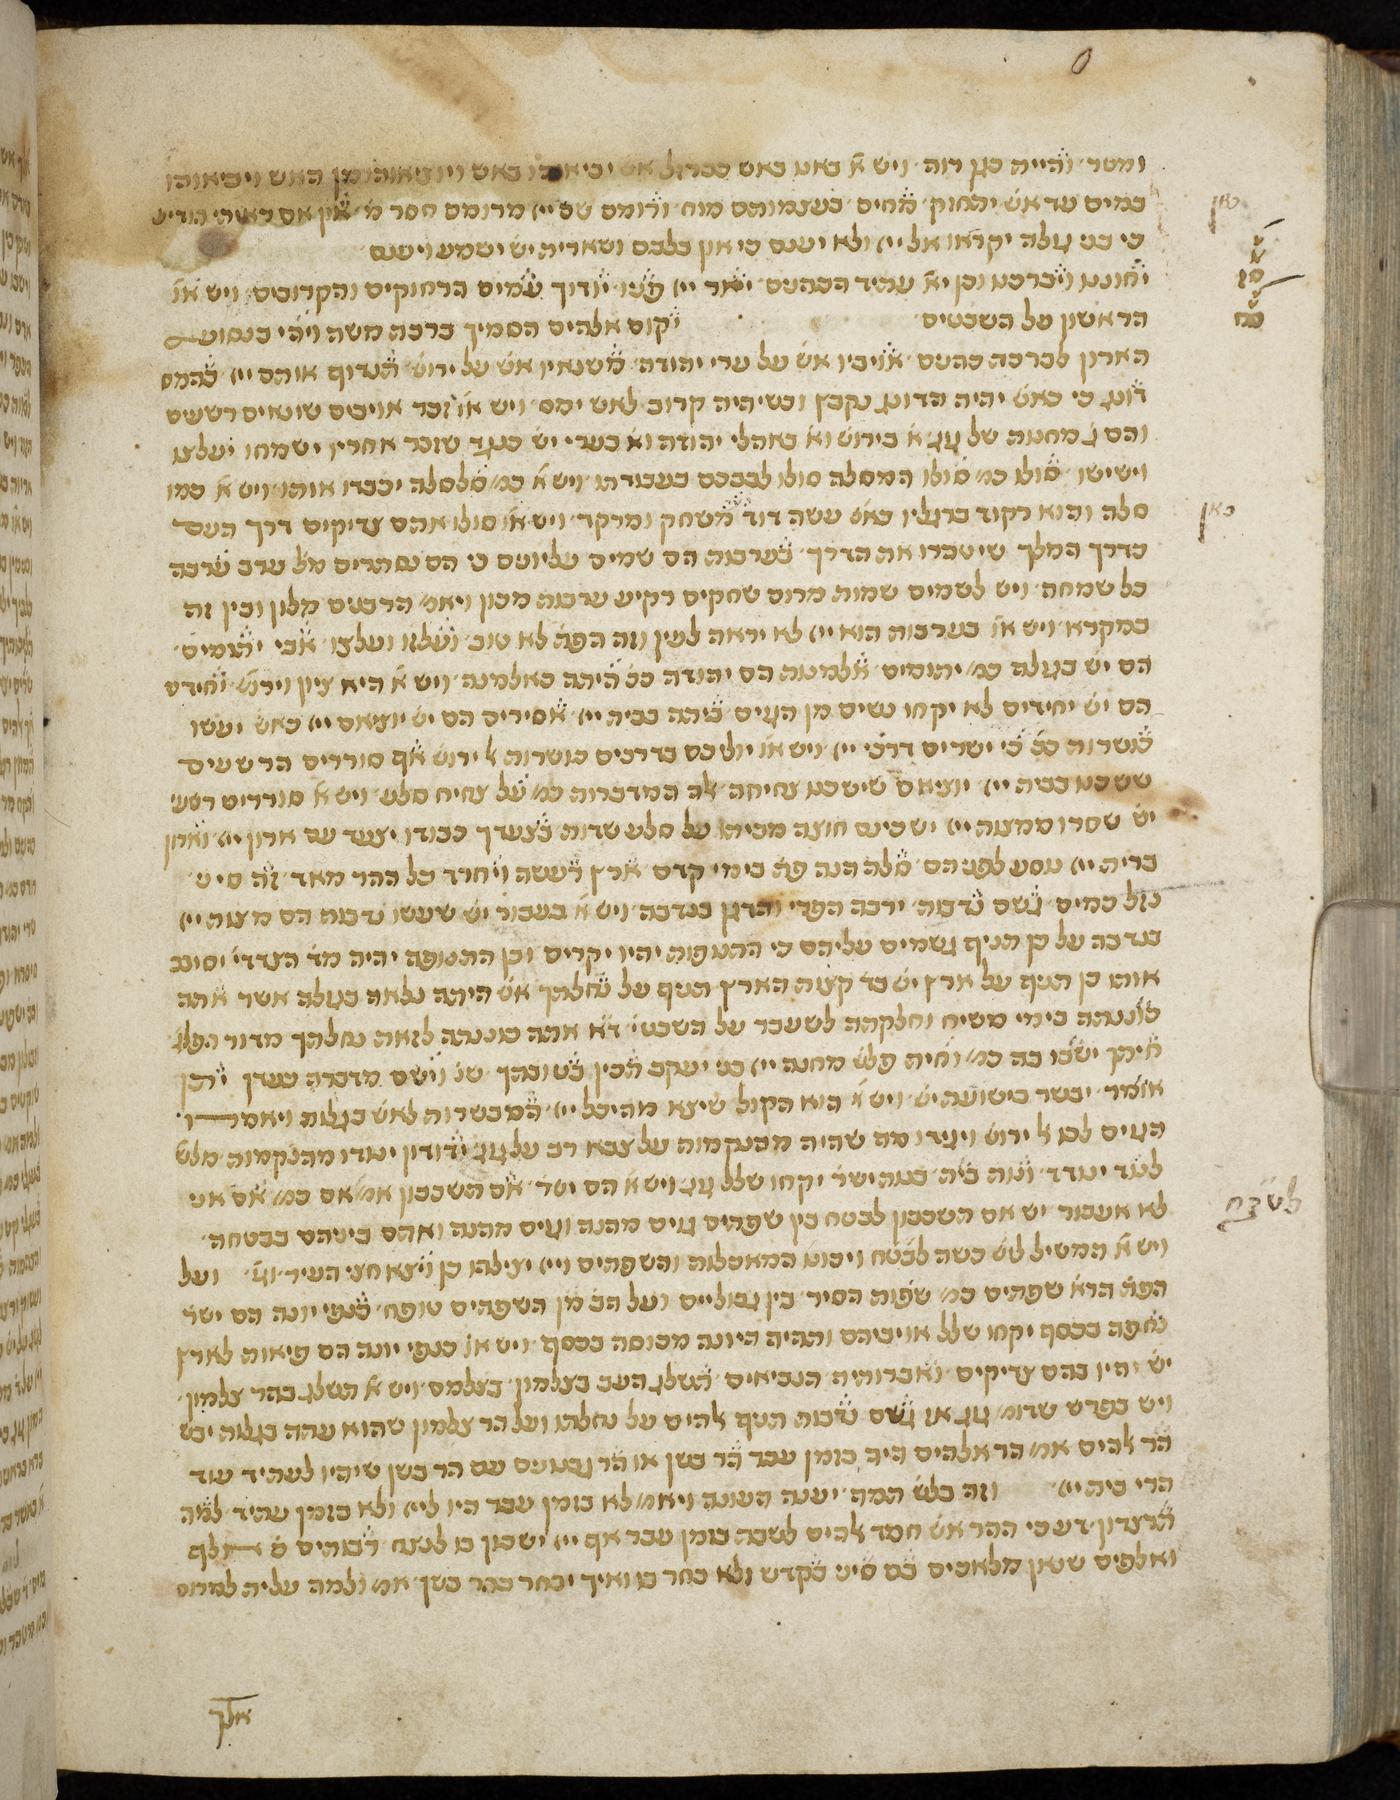 ומטר והייה כגן רוה ויש א באש באש כברזל אש יביאוהו באש ויוציאוהו מן האש ויביאוהו
במים עד אש יתחזק מחים בעצמותם מוח ורומם שם ייי מרומם חסר מ און אם ראיתי הודיע
כי בני גולה יקראו אל ייי ולא יענם כי און בלבם ושארית יש ישמע ויענם
יחוננו ויברכנו וכן יא עתיד הכהנים יאר ייי פניו יודוך עמים הרחוקים והקרובים ויש או
הראשון על השבטים יקום אלהים הסמיך ברכה משה ויהי בנסוע
הארון לברכה כהנים אויביו אש על ערי יהודה משנאיו אש על ירוש תנדוף אותם ייי כהמס
דונג כי כאש יהיה הדונג נקבץ וכשיהיה קרוב לאש ימס ויש או זכר אויבים שונאים רשעים
והם ג מחנות של גוג א בירוש וא באהלי יהודה וא בערי יש כנגד שזכר אחריו ישמחו יעלצו
וישישו סולו כמ סולו המסלה סולו לבבכם בעבודתו ויש א כמ סלסלה יכבדו אותו ויש א כמו
סלה והוא רקוד ברגליו כאש עשה דוד משחק ומרקד ויש או סולו אתם צדיקים דרך העם
כדרך המלך שישברו את הדרך בערבות הם שמים עליונים כי הם נסתרים מל ערב ערבה
כל שמחה ויש לשמים שמות מרום שחקים רקיע ערבות מכון ויאמ הרבנים מלון ובין זה
במקרא ויש או בערבות הוא ייי לא יראה לעין וזה הפת לא טוב ועלזו ועלצו אבי יתומים
הם יש בגולה כמ יתומים אלמנות הם יהודה ככ היתה כאלמנה ויש א היא ציון וירוש יחידים
הם יש יחידים לא יקחו נשים מן הגוים ביתה בבית ייי אסירים הם יש יוציאם ייי כאש יעשו
כושרות ככ כי ישרים דרכי ייי ויש או יוליכם בדרכים כושרות ל ירוש אך סוררים הרשעים
ששכנו בבית ייי יוציאם שישכנו צחיחה אר המדברות כמ על צחיח סלע ויש א סוררים רשעי
יש שסרו ממצות ייי ישכינם חוצה מביתו על סלע שדות בצעדך ככודו יצעד עם ארון ייי וארון
ברית ייי נוסע לפניהם סלה הנה פה בימי קדם ארץ רעשה ויחרד כל ההר מאד זה סיני
נזל כמים גשם נדבות ירבה הפרי והדגן בנדבה ויש א בעבור יש שעשו נדבות הם מצות ייי
בנדבה על כן תניף גשמים עליהם כי התנופות יהיו יקרים וכן התנופה יהיה מז הצדדי וסובב
אותו כן תניף על ארץ יש כד קצות הארץ תניף על נחלתך אש היתה נלאה בגולה אשר אתה
כוננתה בימי משיח וחלקתה לשעבר על השבטי דא אתה כוננתה לזאת נחלתך מדור הפלג
חיתך ישבו בה כמ וחית פלש מחנה ייי בני יעקב תכין בטובתך שנ וישם מדברה כעדן יתן
אומר יבשר בישועת יש ויש א הוא הקול שיצא מהיכל ייי המבשרות לאש בגלות ויאמרו
הגוים לכו ל ירוש ויגידו מה שהיה מהנקמות על צבא רב על גוג ידודון יעודו מהנקמות מלש
לנוד ינודד ונות בית בעת ישר יקחו שלל גוג ויש א הם ישר אם תשכבון אמ אם כמ אם אני
לא אעבור יש אם תשכבון לבטח בין שפתים גוים מהנה וגוים מהנה ואתם ביניהם בבטחה
ויש א המשיל לש בשה לבטח ויכונו המאכלות והשפתים וייי יצילהו כן ויצא חצי העיר וג ועל
הפת הרא שפתים כמ שפות הסיר בין גבולייס ועל הב מן השפתים טופח כנפי יונה הם ישר
נחפה בכסף יקחו שלל אויביהם ותהיה היונה מכוסה בכסף ויש או כנפי יונה הם פיאות לארץ
יש יהיו בהם צדיקים ואברותיה הנביאים תשלג העב בצלמון בצלמם ויש א תשלג בהר צלמון
ויש בפרש שדומ גוג או גשם נדבות תניף אלהים על נחלתו ועל הר צלמון שהוא עתה בגלות יבש
הר אלהים אמ הר אלהים היה בזמן עבר הר בשן או הר גבנונים עם הר בשן שיהיו לעתיד עוד
הרי בית ייי וזה בלש תמה יענה העונה ויאמ לא בזמן עבר היו לייי ולא בזמן עתיד למה
תרצדון דעו כי ההר אש חמד אלהים לשבתו בזמן עבר אף ייי ישכון בו לנצח רבותים אלף
ואלפים שנאן מלאכים בם סיני בקדש ולא בחר בו ואיך יבחר בהר בשן אמ ולמה עלית למרום
לש נצח
אלך